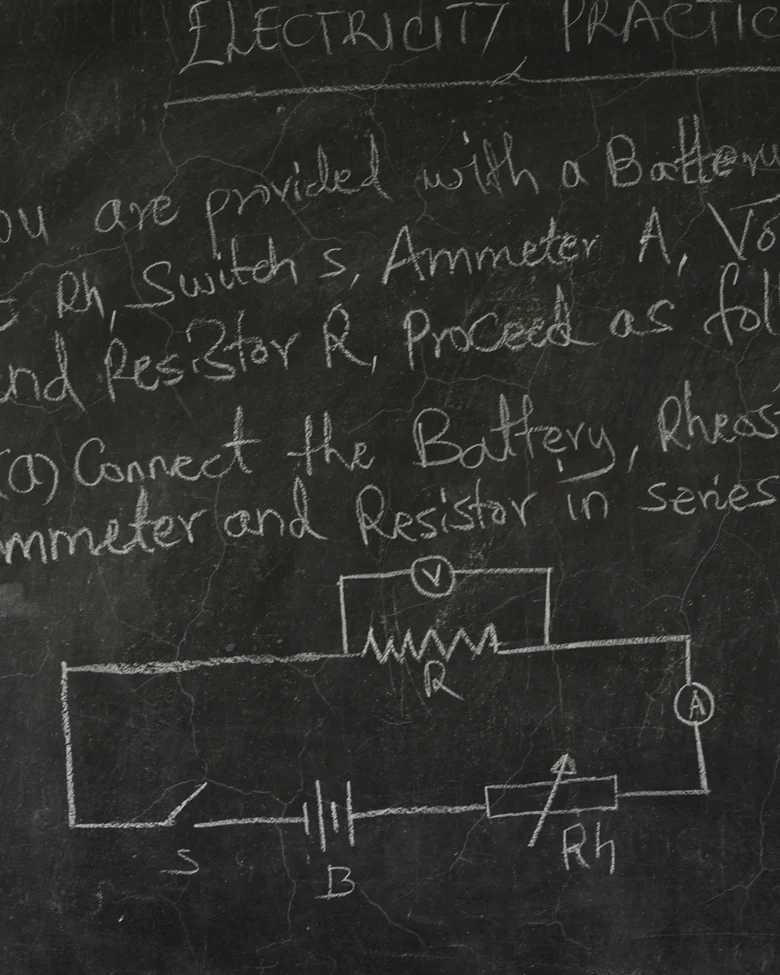 ELECTRICITY PRACTIC
ou are provided with a Battery
Rh, Switch S, Ammeter A, Vo
nd Resistor R, Proceed as fol
(a) Connect the Battery, Rheos
mmeter and Resistor in series
V
R
A
S
B
Rh